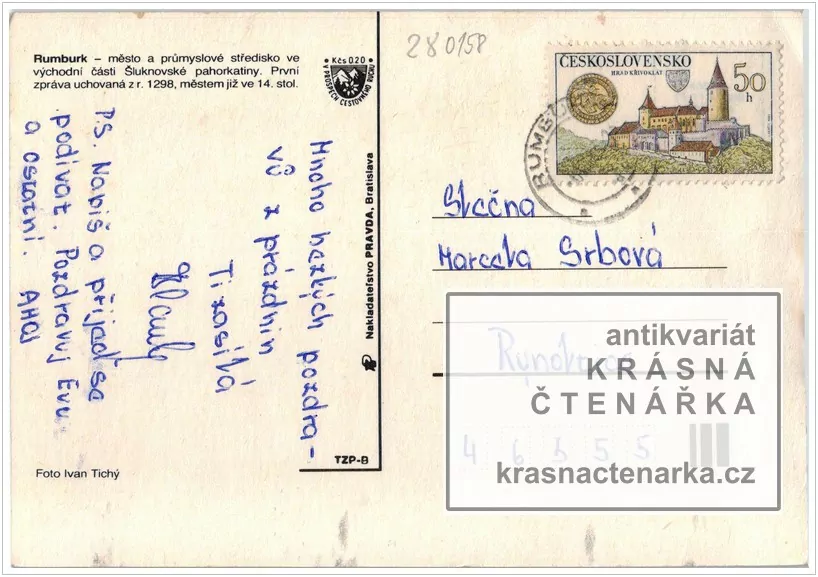 Rumburk – město a průmyslové středisko ve
východní části Šluknovské pahorkatiny. První
zpráva uchovaná z r. 1298, městem již ve 14. stol.
Kčs 0.20
V PROSPĚCH CESTOVNÍHO RUCHU
280158
ČESKOSLOVENSKO
HRAD KŘIVOKLÁT
50
h
Mnoho hezkých pozdra-
vů z prázdnin
Ti zasílá
P.S. Napiš a přijeď se
podívat. Pozdravuj Evu
a ostatní. AHOJ
Nakladatelství PRAVDA, Bratislava
TZP-B
Foto Ivan Tichý
Slečna
Marcela Srbová
46355
antikvariát
KRÁSNÁ
ČTENÁŘKA
krasnactenarka.cz